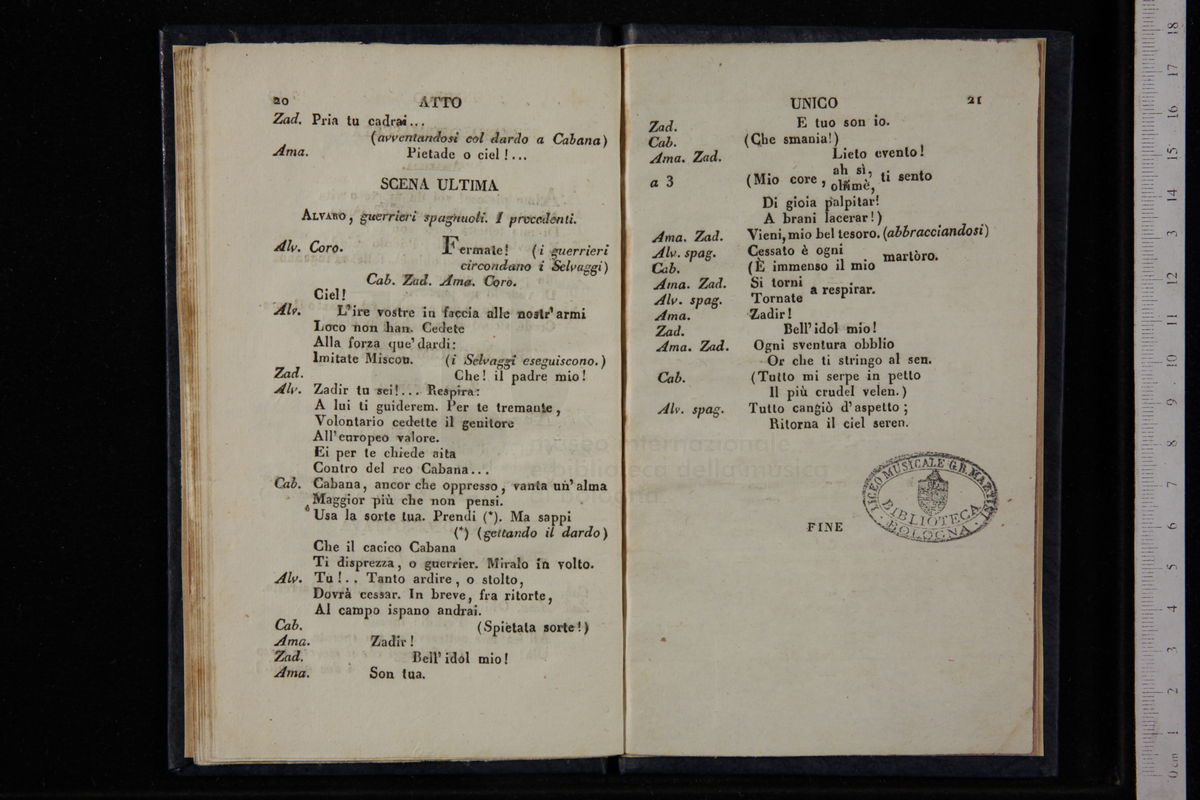 20 ATTO
Zad. Pria tu cadrai...
(avventandosi col dardo a Cabana)
Ama. Pietade o ciel!...
SCENA ULTIMA
ALVARO, guerrieri spagnuoli. I precedenti.
Alv. Coro. Fermate! (i guerrieri
circondano i Selvaggi)
Cab. Zad. Ama. Coro.
Ciel!
Alv. L'ire vostre in faccia alle nostr'armi
Loco non han. Cedete
Alla forza que' dardi:
Imitate Miscou. (i Selvaggi eseguiscono.)
Zad. Che! il padre mio!
Alv. Zadir tu sei!... Respira:
A lui ti guiderem. Per te tremante,
Volontario cedette il genitore
All'europeo valore.
Ei per te chiede aita
Contro del reo Cabana...
Cab. Cabana, ancor che oppresso, vanta un'alma
Maggior più che non pensi.
Usa la sorte tua. Prendi (*). Ma sappi
(*) (gettando il dardo)
Che il cacico Cabana
Ti disprezza, o guerrier. Miralo in volto.
Alv. Tu!.. Tanto ardire, o stolto,
Dovrà cessar. In breve, fra ritorte,
Al campo ispano andrai.
Cab. (Spietata sorte!)
Ama. Zadir!
Zad. Bell'idol mio!
Ama. Son tua.
UNICO 21
Zad. E tuo son io.
Cab. (Che smania!)
Ama. Zad. Lieto evento!
a 3 (Mio core, ah sì, ti sento
ohimè,
Di gioia palpitar!
A brani lacerar!)
Ama. Zad. Vieni, mio bel tesoro. (abbracciandosi)
Alv. spag. Cessato è ogni martòro.
Cab. (È immenso il mio
Ama. Zad. Si torni a respirar.
Alv. spag. Tornate
Ama. Zadir!
Zad. Bell'idol mio!
Ama. Zad. Ogni sventura obblio
Or che ti stringo al sen.
Cab. (Tutto mi serpe in petto
Il più crudel velen.)
Alv. spag. Tutto cangiò d'aspetto;
Ritorna il ciel seren.
FINE
LICEO MUSICALE G.B. MARTINI
BIBLIOTECA
BOLOGNA
museo internazionale
e biblioteca della musica
0 cm 1 2 3 4 5 6 7 8 9 10 11 12 13 14 15 16 17 18